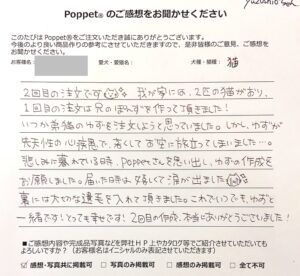 Poppet®のご感想をお聞かせください
このたびはPoppet®をご注文いただき誠にありがとうございます。
今後のより良い商品作りの参考にさせていただきますので、是非皆様のご意見、ご感想を
お聞かせください。
お客様名: 愛犬・愛猫名: 犬種・猫種: 猫
2回目の注文です 我が家には、2匹の猫がおり、
1回目の注文は兄のぽんずを作って頂きました!
いつか弟猫のゆずを注文しようと思っていました。しかし、ゆずが
先天性の心疾患で、若くしてお空に旅立ってしまいました…。
悲しみに暮れている時、Poppetさんを思い出し、ゆずの作成を
お願いしました。届いた時は嬉しくて涙が出ました
裏には大切な遺毛を入れて頂きました。これでいつでも、ゆずと
一緒です!とっても幸せです!2回目の作成、本当にありがとうございました!
■ご感想内容や完成品写真などを弊社HP上やカタログ等でご紹介させていただいても
よろしいですか?(お客様名はイニシャルのみ表記させていただきます)
感想・写真共に掲載可 写真のみ掲載可 感想のみ掲載可 全て不可